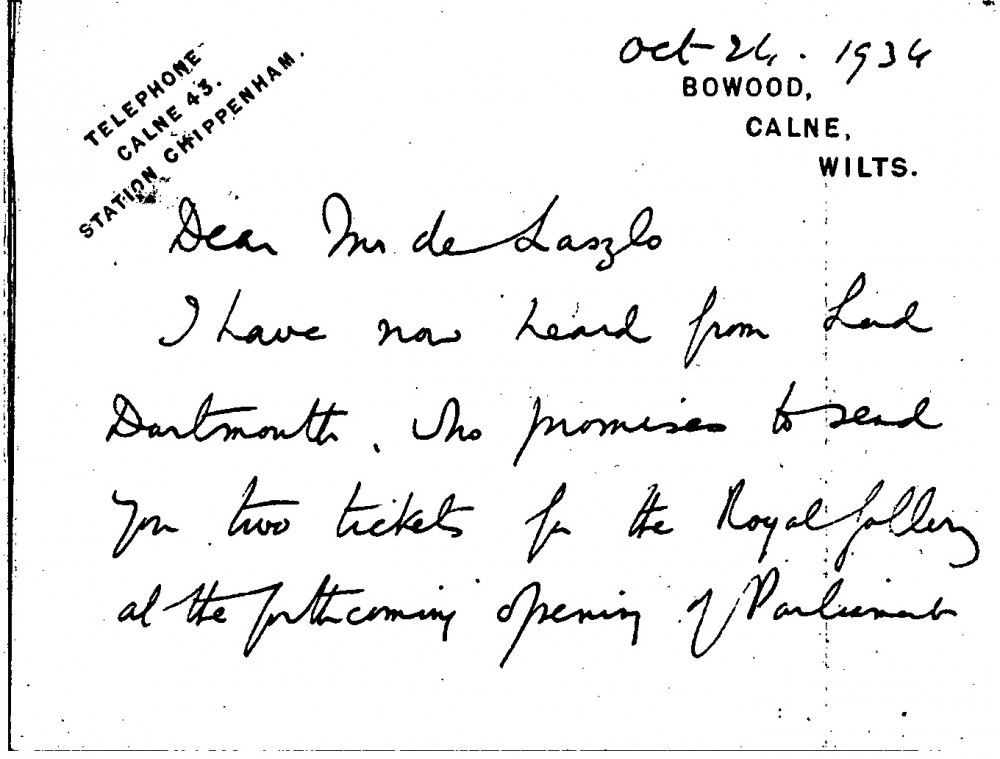 TELEPHONE
CALNE 43.
STATION CHIPPENHAM.
Oct 24. 1934
BOWOOD,
CALNE,
WILTS.
Dear Mr de Laszlo
I have now heard from Lord
Dartmouth, who promises to send
you two tickets for the Royal Gallery
at the forthcoming opening of Parliament